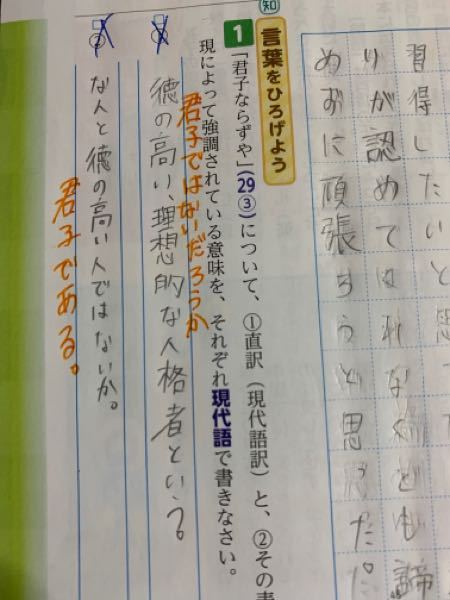 習得したいと思
りが認めてはれなくども諦
めずに頑張ろうと思った。
知
言葉をひろげよう
1 「君子ならずや」(29③)について、①直訳(現代語訳)と、②その表
現によって強調されている意味を、それぞれ現代語で書きなさい。
君子ではないだろうか
徳の高い、理想的な人格者という。
な人と徳の高い人ではないか。
君子である。